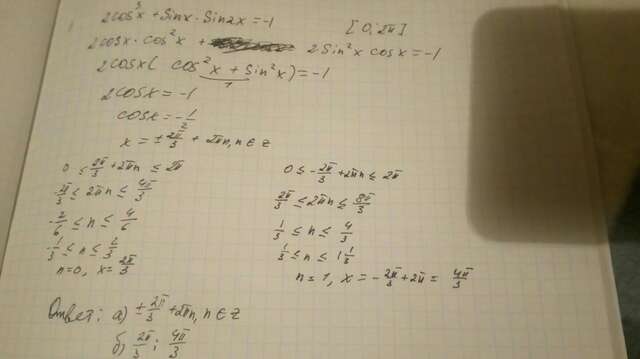 2cos³x + sinx · sin2x = -1 [0, 2π]
2cosx · cos²x + 2sin²x cosx = -1
2cosx( cos²x + sin²x) = -1
1
2cosx = -1
cosx = -1/2
x = ± 2π/3 + 2πn, n ∈ z
0 ≤ 2π/3 + 2πn ≤ 2π
-2π/3 ≤ 2πn ≤ 4π/3
-2/6 ≤ n ≤ 4/6
-1/3 ≤ n ≤ 2/3
n=0, x= 2π/3
0 ≤ -2π/3 + 2πn ≤ 2π
2π/3 ≤ 2πn ≤ 8π/3
1/3 ≤ n ≤ 4/3
1/3 ≤ n ≤ 1 1/3
n = 1, x = -2π/3 + 2π = 4π/3
Ответ: а) ± 2π/3 + 2πn, n ∈ z
б) 2π/3 ; 4π/3